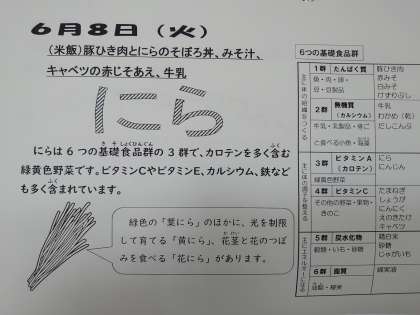 6月8日（火）
（米飯）豚ひき肉とにらのそぼろ丼、みそ汁、
キャベツの赤じそあえ、牛乳
にら
にらは６つの基礎食品群の３群で、カロテンを多く含む
緑黄色野菜です。ビタミンCやビタミンE、カルシウム、鉄など
も多く含まれています。
緑色の「葉にら」のほかに、光を制限
して育てる「黄にら」、花茎と花のつぼ
みを食べる「花にら」があります。
6つの基礎食品群
1群 たんぱく質
魚・肉・卵・
豆・豆製品
豚ひき肉
赤みそ
白みそ
けずりぶし
2群 無機質
（カルシウム）
牛乳・乳製品・骨ご
と食べる小魚・海藻
牛乳
わかめ（乾）
だしこんぶ
3群 ビタミンA
（カロテン）
緑黄色野菜
にら
にんじん
4群 ビタミンC
その他の野菜・果物・
きのこ
たまねぎ
しょうが
にんにく
えのきたけ
キャベツ
5群 炭水化物
穀類・いも・砂糖
精白米
砂糖
じゃがいも
6群 脂質
油脂・種実